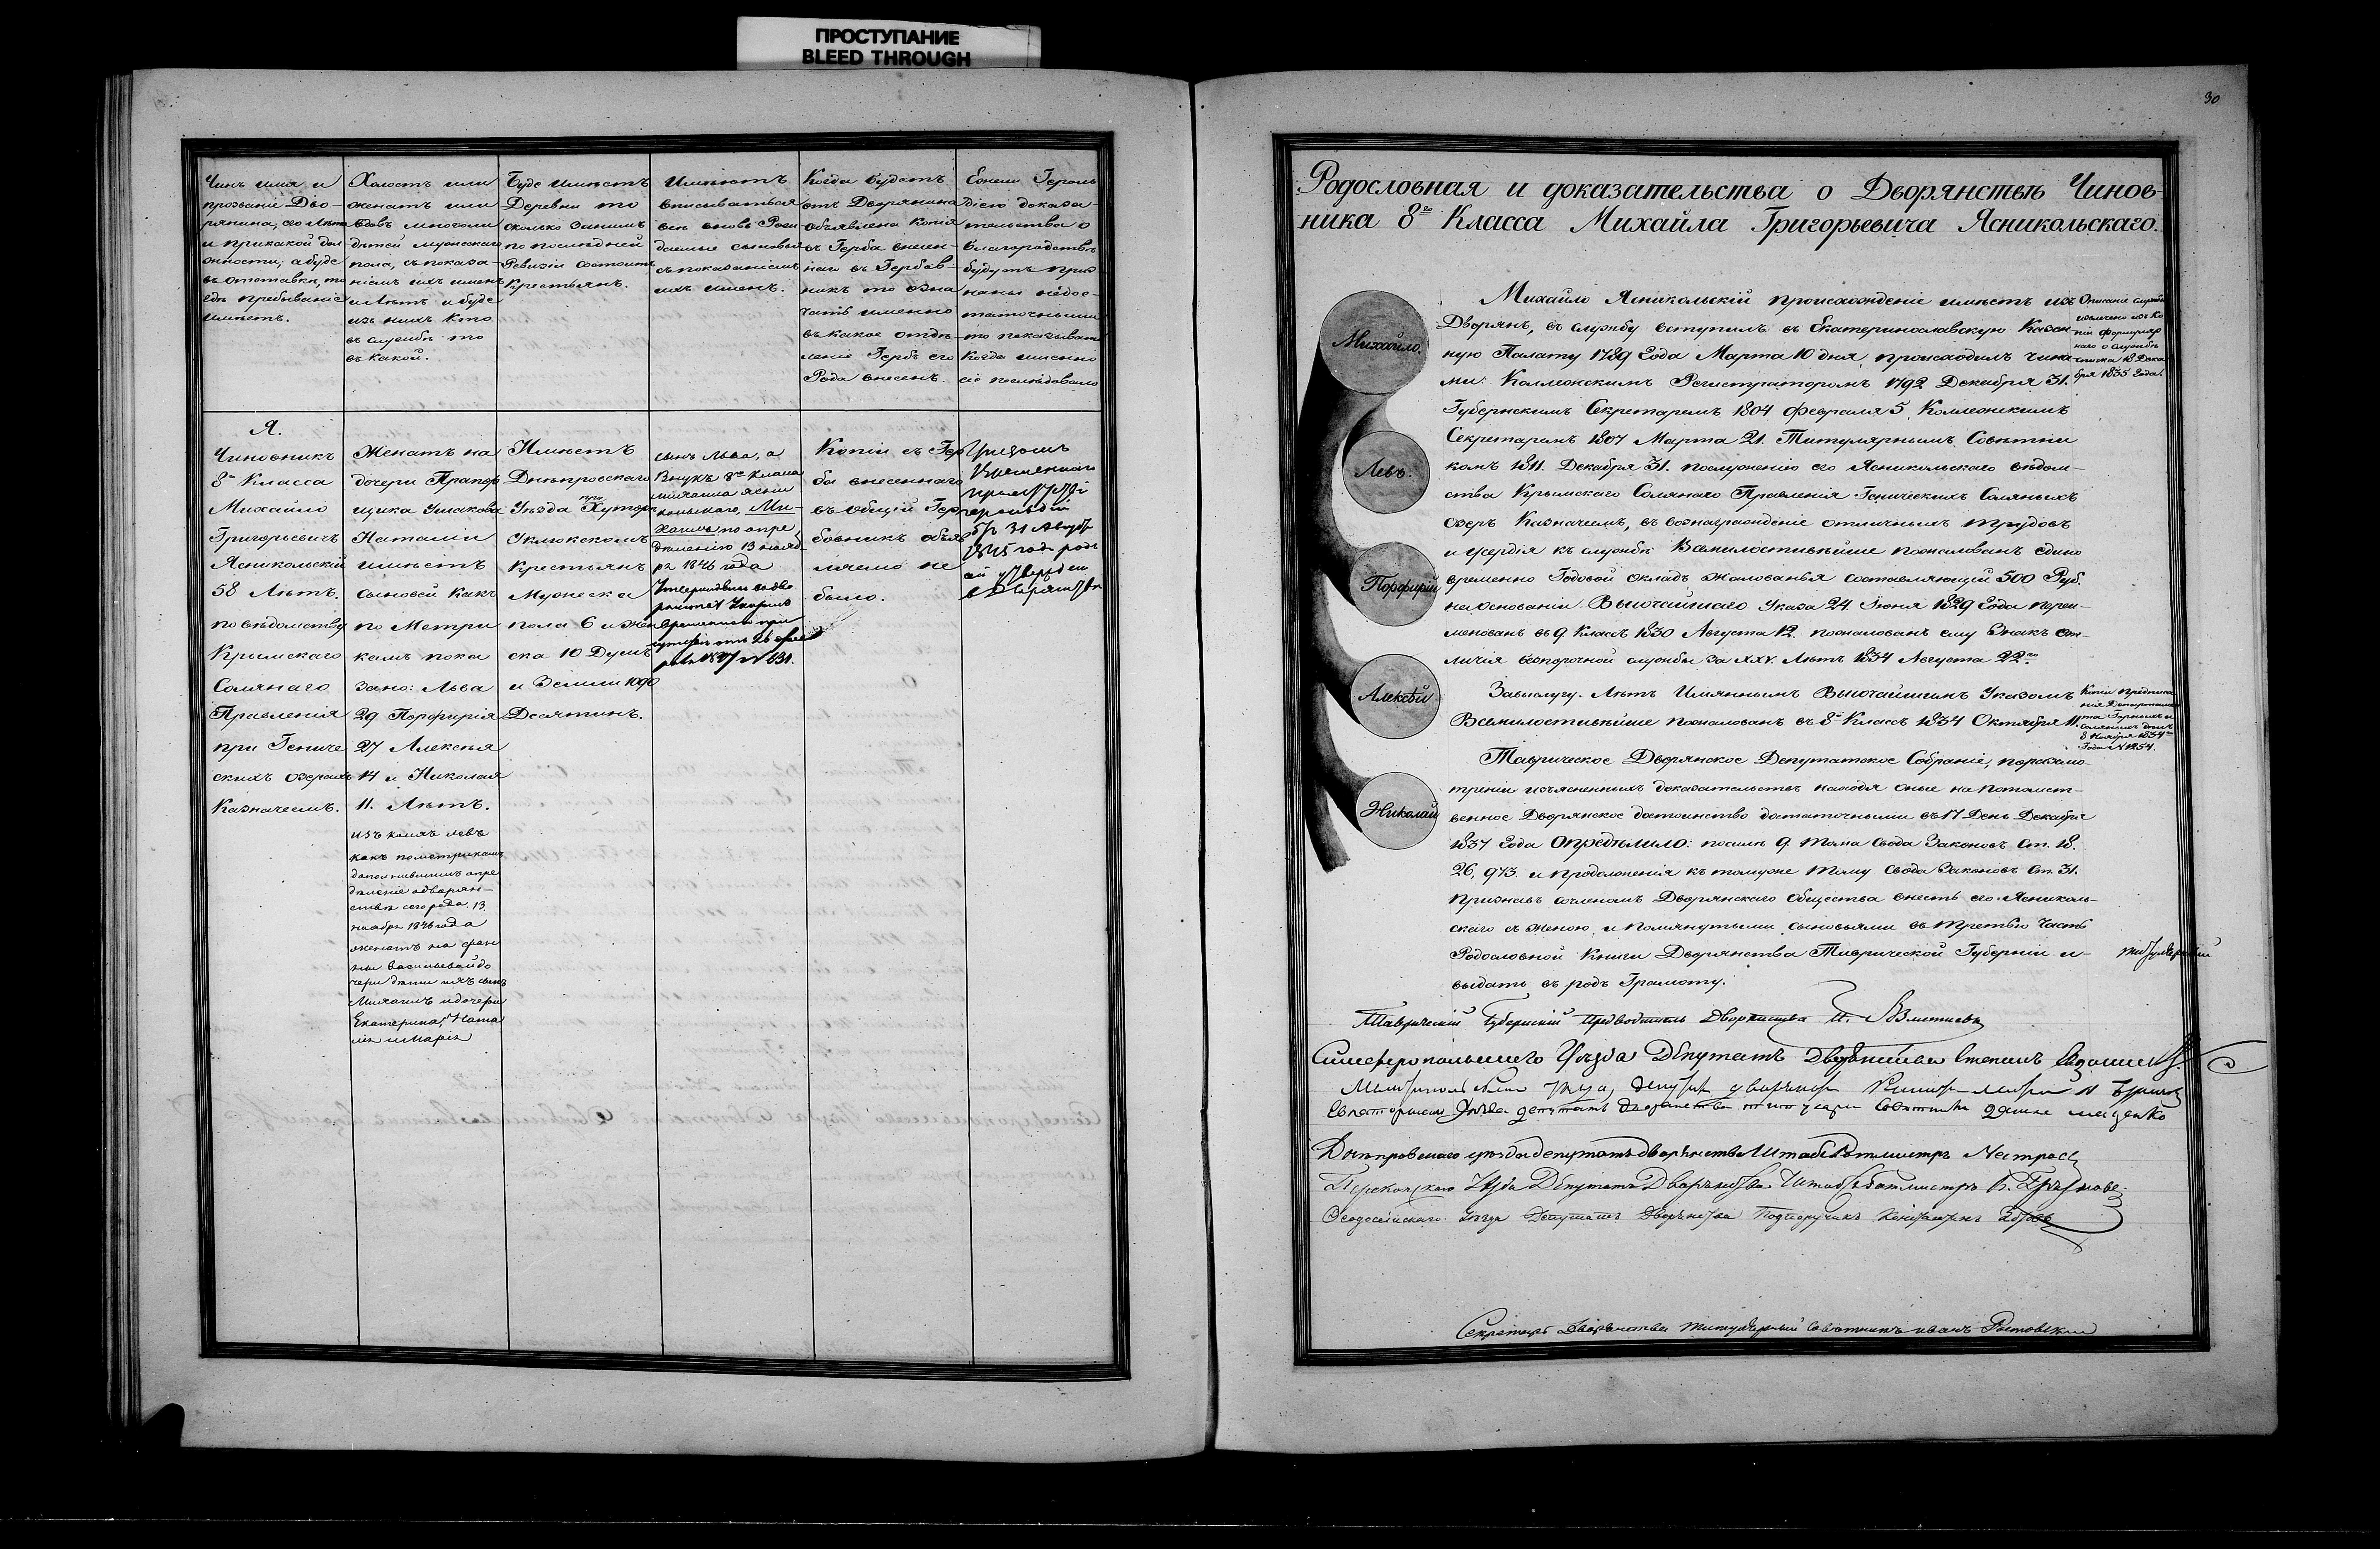 ПРОСТУПАНИЕ
BLEED THROUGH
Чинъ имя и
прозваніе Дво-
рянина, его лѣта
и прикакой дол
жности; абуде
въ отставкѣ, то
гдѣ пребываніе
имѣетъ.
Холостъ или
женатъ или
вдовъ многоли
дѣтей мужескаго
пола, съ показа-
ніемъ ихъ именъ
и лѣтъ и буде
изъ нихъ кто
въ службѣ то
въ какой.
Буде имѣетъ
Деревни то
сколько занимъ
по послѣдней
Ревизіи состоитъ
крестьянъ.
Имѣютъ
вписываться
сіи вновь Рож
даемые сыновья
съ показаніемъ
ихъ именъ.
Когда будетъ
отъ Дворянина
объявлена копія
съ Герба внесен-
наго въ Гербов-
никъ то озна
чать именно
въ какое отдѣ-
леніе Гербъ его
Рода внесенъ.
Ежели Героль
дією доказа-
тельства о
благородствѣ
будутъ приз
наны недос-
таточными
то показывать
когда именно
сіе послѣдовало
Я.
Чиновникъ
8го Класса
Михайло
Григорьевичъ
Ясникольскій
58 Лѣтъ.
по вѣдомству
Крымскаго
Солянаго
Правленія
при Гениче
скихъ озерахъ
Казначеемъ.
Женатъ на
дочери Прапор
щика Ушакова
Наталіи
имѣетъ
сыновей какъ
по Метри
камъ пока
зано: Льва
29 Порфирія
27 Алексѣя
14 и Николая
11. Лѣтъ.
изъ коихъ левъ
какъ пометрикамъ
дополнившимъ опре
дѣленіе одворян-
ствѣ сегорода 13
ноября 1846 года
женатъ на
васильевой до
чери дѣти ихъ сынъ
Михаилъ и дочери
Екатерина, Ната
лія и Марія
Имѣетъ
Днѣпровскаго
Уѣзда при Хуторѣ
Уклюкскомъ
Крестьянъ
Мужеска
пола 6 и Жен
ска 10 Душъ
и Земли 1090
Десятинъ.
сынъ Льва, а
Внукъ 8го класса
михаила ясни
кольскаго, Ми-
хаилъ по опре
дѣленію 13 нояб-
ря 1846 года
Копіи съ Гер
ба внесеннаго
въ общій Гер
бовникъ объяв
ляемо не
было.
Указомъ
Временнаго
герольдіи
отъ 31 Августа
1845 года родъ
сей утвержденъ
въ Дворянствѣ
30
Родословная и доказательства о Дворянствѣ Чинов-
ника 8го Класса Михайла Григорьевича Ясникольскаго.
Михайло.
Левъ.
Порфирій
Алексѣй
Николай
Михайло Ясникольскій происхожденіе имѣетъ изъ
Дворянъ, въ службу вступилъ въ Екатеринославскую Казен
ную Палату 1789 Года Марта 10 дня, происходилъ чина
ми: Коллежскимъ Регистраторомъ 1792 Декабря 31.
Губернскимъ Секретаремъ 1804 февраля 5, Коллежскимъ
Секретаремъ 1807 Марта 21. Титулярнымъ Совѣтни
комъ 1811. Декабря 31. послуженію его Ясникольскаго вѣдом-
ства Крымскаго Солянаго Правленія Геническихъ Соляныхъ
озеръ Казначеемъ, въ вознагражденіе отличныхъ трудовъ
и усердія къ службѣ Всемилостивѣйше пожалованъ едино
временно Годовой окладъ жалованья составляющій 500 Руб.
наоснованіи Высочайшаго Указа 24 Іюня 1829 Года переи
менованъ въ 9. Классъ 1830 Августа 12. пожалованъ ему Знакъ от-
личія безпорочной службы за XXV. Лѣтъ 1834 Августа 22го
Описаніе службы
извлечено изъ Ко
піи формуляр
наго о службѣ
списка 18 Декаб
бря 1835 Года.
Завыслугу Лѣтъ Имяннымъ Высочайшимъ Указомъ
Всемилостивѣйше пожалованъ въ 8й Классъ 1834 Октября 11.
Копія предписа
нія Департамен
та Горныхъ и
соляныхъ дѣлъ
8 Ноября 1834го
Года № 1254.
Таврическое Дворянское Депутатское Собраніе, поразсмо-
треніи изъясненныхъ доказательствъ находя оныя на потомст-
венное Дворянское достоинство достаточными въ 17 День Декабря
1837 Года Опредѣлило: посилѣ 9. тома Свода Законовъ Ст. 18.
26, 973. и продолженія къ томуже тому Свода Законовъ Ст. 31.
признавъ сочленомъ Дворянскаго Общества внесть его Ясниколь-
скаго съ Женою, и помянутыми сыновьями въ третью Часть
Родословной Книги Дворянства Таврической Губерніи и-
выдать въ родъ Грамоту.
Таврическій Губернскій Предводитель Дворянства
Симферопольскаго Уѣзда Депутатъ Дворянства Степанъ
Евпаторійскаго Уѣзда депутатъ дворянства
Днѣпровскаго уѣзда депутатъ дворянства Штабсъ Ротмистръ
Перекопскаго Уѣзда Депутатъ Дворянства Штабсъ Ротмистръ
Ѳеодосійскаго Уѣзда Депутатъ Дворянства Подпоручикъ
Секретарь Дворянства титулярный Совѣтникъ иванъ Ростовскій